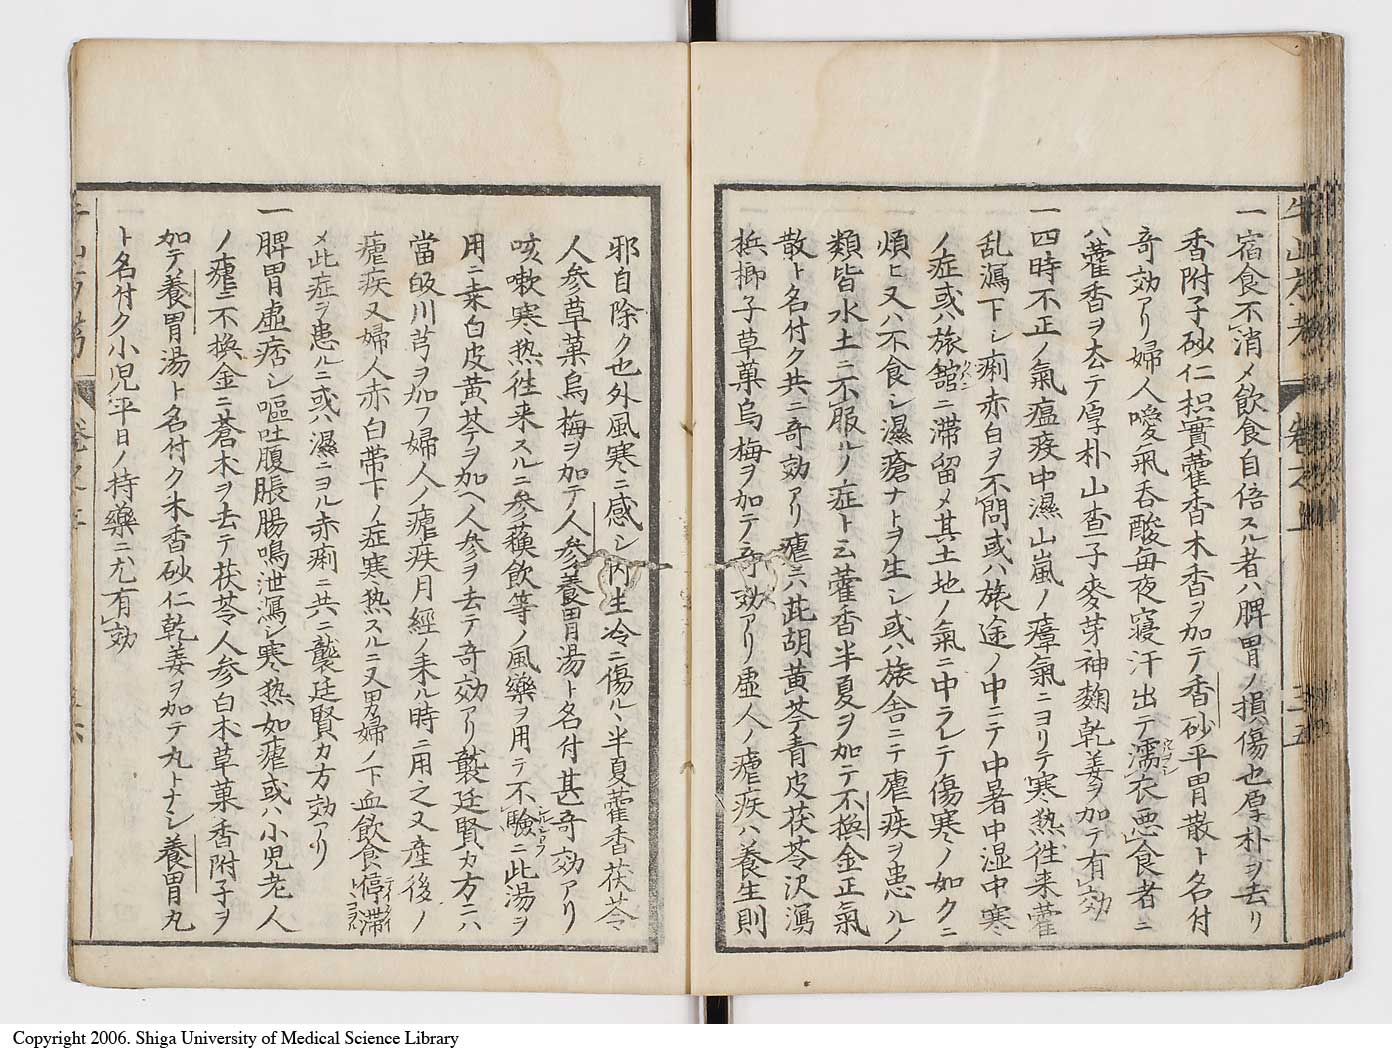 一宿食不消〆飲食自倍スル者ハ脾胃ノ損傷也厚朴ヲ去リ
香附子砂仁枳實藿香木香ヲ加テ香砂平胃散ト名付
奇効アリ婦人噯氣呑酸毎夜寝汗出テ濡衣悪食者ニ
ハ藿香ヲ去テ厚朴山査子麥芽神麴乾姜ヲ加テ有効
一四時不正ノ氣瘟疫中濕山嵐ノ瘴氣ニヨリテ寒熱徃来藿
乱瀉下シ痢赤白ヲ不問或ハ旅途ノ中ニテ中暑中湿中寒
ノ症或ハ旅舘ニ滞留〆其土地ノ氣ニ中ラレテ傷寒ノ如クニ
煩ヒ又ハ不食シ濕瘡ナトヲ生シ或ハ旅舎ニテ瘧疾ヲ患ルノ
類皆水土ニ不服ルノ症ト云藿香半夏ヲ加テ不換金正氣
散ト名付ク共ニ奇効アリ瘧ニハ茈胡黄芩青皮茯苓沢瀉
梹榔子草菓烏梅ヲ加テ奇効アリ虚人ノ瘧疾ハ養生則
邪自除ク也外風寒ニ感シ内生冷ニ傷ルヽ半夏藿香茯苓
人参草菓烏梅ヲ加テ人参養胃湯ト名付甚奇効アリ
咳嗽寒熱徃来スルニ参蘓飲等ノ風藥ヲ用テ不驗ニ此湯ヲ
用ニ桒白皮黄芩ヲ加ヘ人参ヲ去テ奇効アリ龔廷賢カ方ニハ
當皈川芎ヲ加フ婦人ノ瘧疾月經ノ来ル時ニ用之又産後ノ
瘧疾又婦人赤白帯下ノ症寒熱スルニ又男婦ノ下血飲食停滞
〆此症ヲ患ルニ或ハ濕ニヨル赤痢ニ共ニ龔廷賢カ方効アリ
一脾胃虚痞シ嘔吐腹脹腸鳴泄瀉シ寒熱如瘧或ハ小児老人
ノ瘧ニ不換金ニ蒼木ヲ去テ茯苓人参白木草菓香附子ヲ
加テ養胃湯ト名付ク木香砂仁乾姜ヲ加テ丸トナシ養胃丸
ト名付ク小児平日ノ持藥ニ尤有効